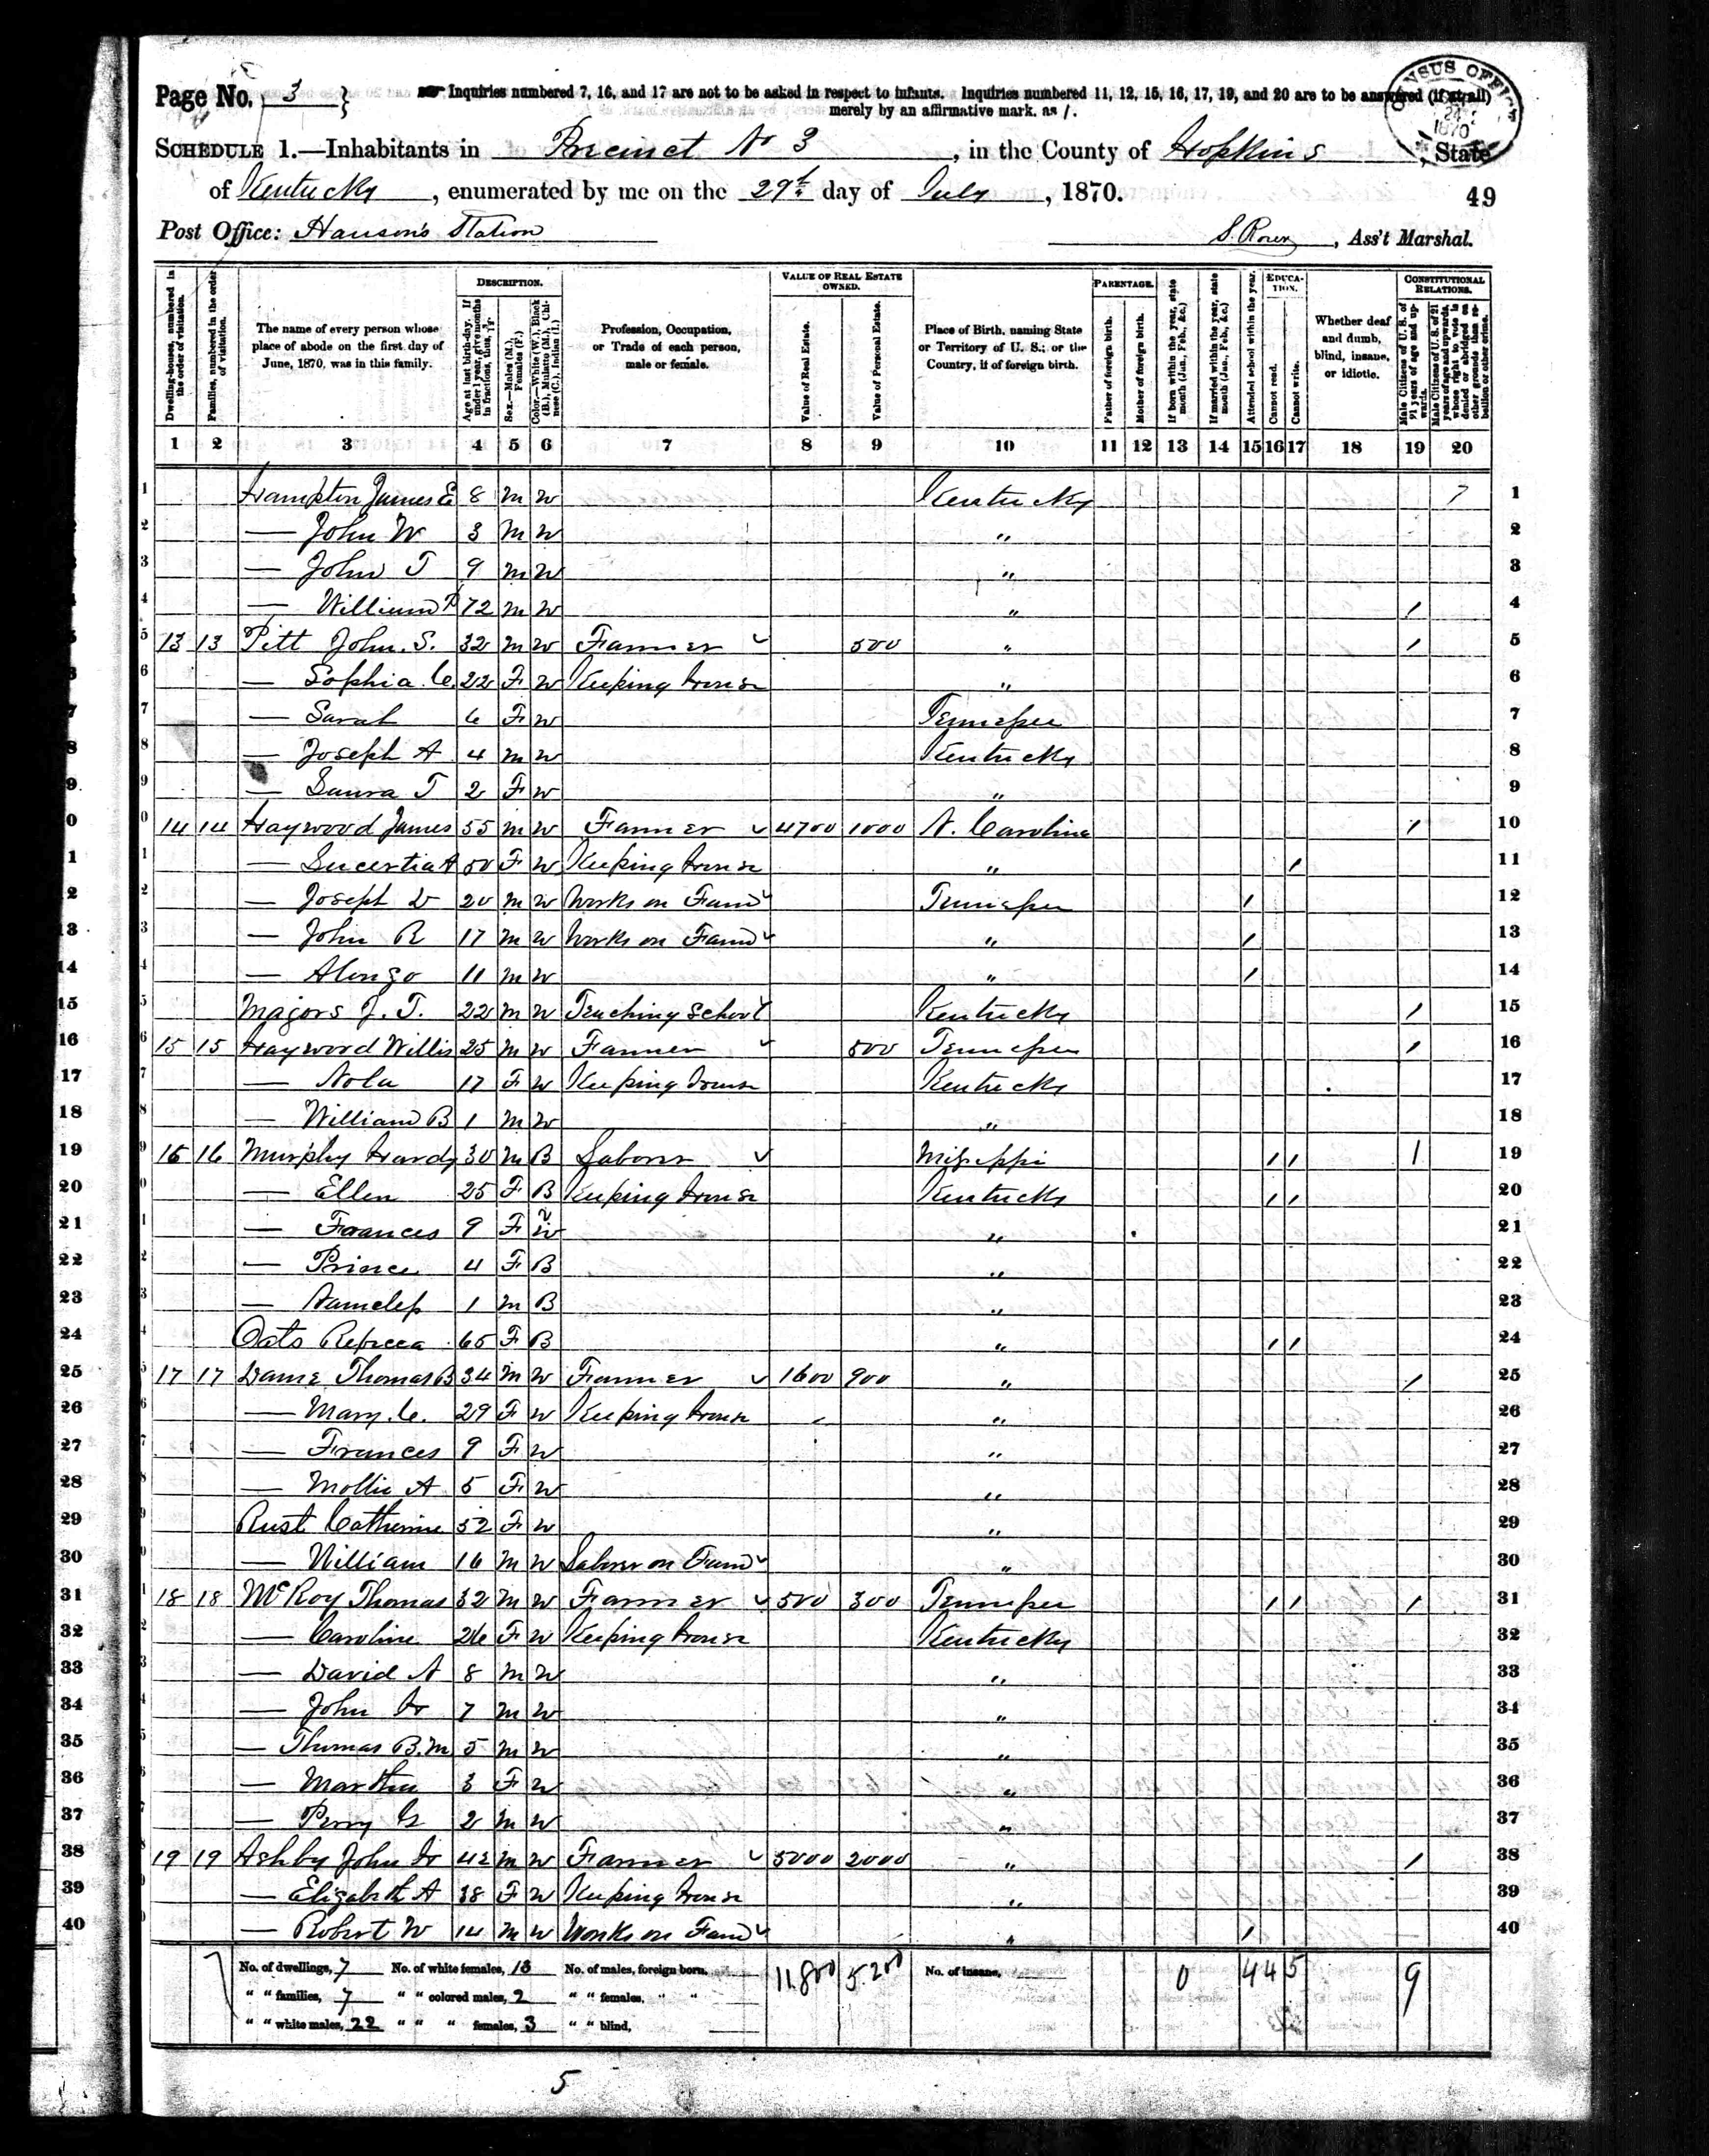 Page No. 3
Inquiries numbered 7, 16, and 17 are not to be asked in respect to infants. Inquiries numbered 11, 12, 15, 16, 17, 19, and 20 are to be answered (if at all)
merely by an affirmative mark, as /.
CENSUS OFFICE 1870
SCHEDULE 1.—Inhabitants in Precinct No 3, in the County of Hopkins, State
of Kentucky, enumerated by me on the 29th day of July, 1870.
49
Post Office: Hanson's Station
S. , Ass't Marshal.
Dwelling-houses, numbered in the order of visitation.
Families, numbered in the order of visitation.
The name of every person whose place of abode on the first day of June, 1870, was in this family.
DESCRIPTION.
Age at last birth-day. If under 1 year, give months in fractions, thus, 3/12
Sex.—Males (M.), Females (F.)
Color.—White (W.), Black (B.), Mulatto (M.), Chinese (C.), Indian (I.)
Profession, Occupation, or Trade of each person, male or female.
VALUE OF REAL ESTATE OWNED.
Value of Real Estate.
Value of Personal Estate.
Place of Birth, naming State or Territory of U. S.; or the Country, if of foreign birth.
PARENTAGE.
Father of foreign birth.
Mother of foreign birth.
If born within the year, state month (Jan., Feb., &c.)
If married within the year, state month (Jan., Feb., &c.)
Attended school within the year.
EDUCATION.
Cannot read.
Cannot write.
Whether deaf and dumb, blind, insane, or idiotic.
CONSTITUTIONAL RELATIONS.
Male Citizens of U. S. of 21 years of age and upwards.
Male Citizens of U. S. of 21 years of age and upwards, whose right to vote is denied or abridged on other grounds than rebellion or other crime.
1 2 3 4 5 6 7 8 9 10 11 12 13 14 15 16 17 18 19 20
1 Hampton James E 8 M W Kentucky 7 1
2 — John W 3 M W " 2
3 — John T 9 M W " 3
4 — William 72 M W " / 4
5 13 13 Pitt John. S. 32 M W Farmer 500 " / 5
6 — Sophia C. 22 F W Keeping house " 6
7 — Sarah 6 F W Tennessee 7
8 — Joseph A 4 M W Kentucky 8
9 — Laura T 2 F W " 9
10 14 14 Haywood James 55 M W Farmer 4700 1000 N. Carolina / 10
11 — Lucertia A 50 F W Keeping house " / 11
12 — Joseph D 20 M W Works on Farm Tennessee / 12
13 — John R 17 M W Works on Farm " / 13
14 — Alonzo 11 M W " / 14
15 Majors J. T. 22 M W Teaching School Kentucky / 15
16 15 15 Haywood Willis 25 M W Farmer 500 Tennessee / 16
17 — Nola 17 F W Keeping house Kentucky 17
18 — William B 1 M W " 18
19 16 16 Murphy Hardy 30 M B Laborer Missippi / / / 19
20 — Ellen 25 F B Keeping house Kentucky / / 20
21 — Frances 9 F W " 21
22 — Prince 4 F B " 22
23 — Nameless 1 M B " 23
24 Oats Rebecca 65 F B " / / 24
25 17 17 Dame Thomas B 34 M W Farmer 1600 900 " / 25
26 — Mary. C. 29 F W Keeping house " 26
27 — Frances 9 F W " 27
28 — Mollie A 5 F W " 28
29 Rust Catherine 52 F W " 29
30 — William 16 M W Labor on Farm " 30
31 18 18 McRoy Thomas 32 M W Farmer 500 300 Tennessee / / / 31
32 — Caroline 26 F W Keeping house Kentucky 32
33 — David A 8 M W " 33
34 — John H 7 M W " 34
35 — Thomas B. M 5 M W " 35
36 — Martha 3 F W " 36
37 — Perry G 2 M W " 37
38 19 19 Ashby John H 42 M W Farmer 5000 2000 " / 38
39 — Elizabeth A 38 F W Keeping house " 39
40 — Robert W 14 M W Works on Farm " / 40
No. of dwellings, 7 No. of white females, 13 No. of males, foreign born, 11.800 5.200 No. of insane, 0 4 4 5 9
" " families, 7 " " colored males, 2 " " females, " "
" " white males, 22 " " " females, 3 " " blind,
5